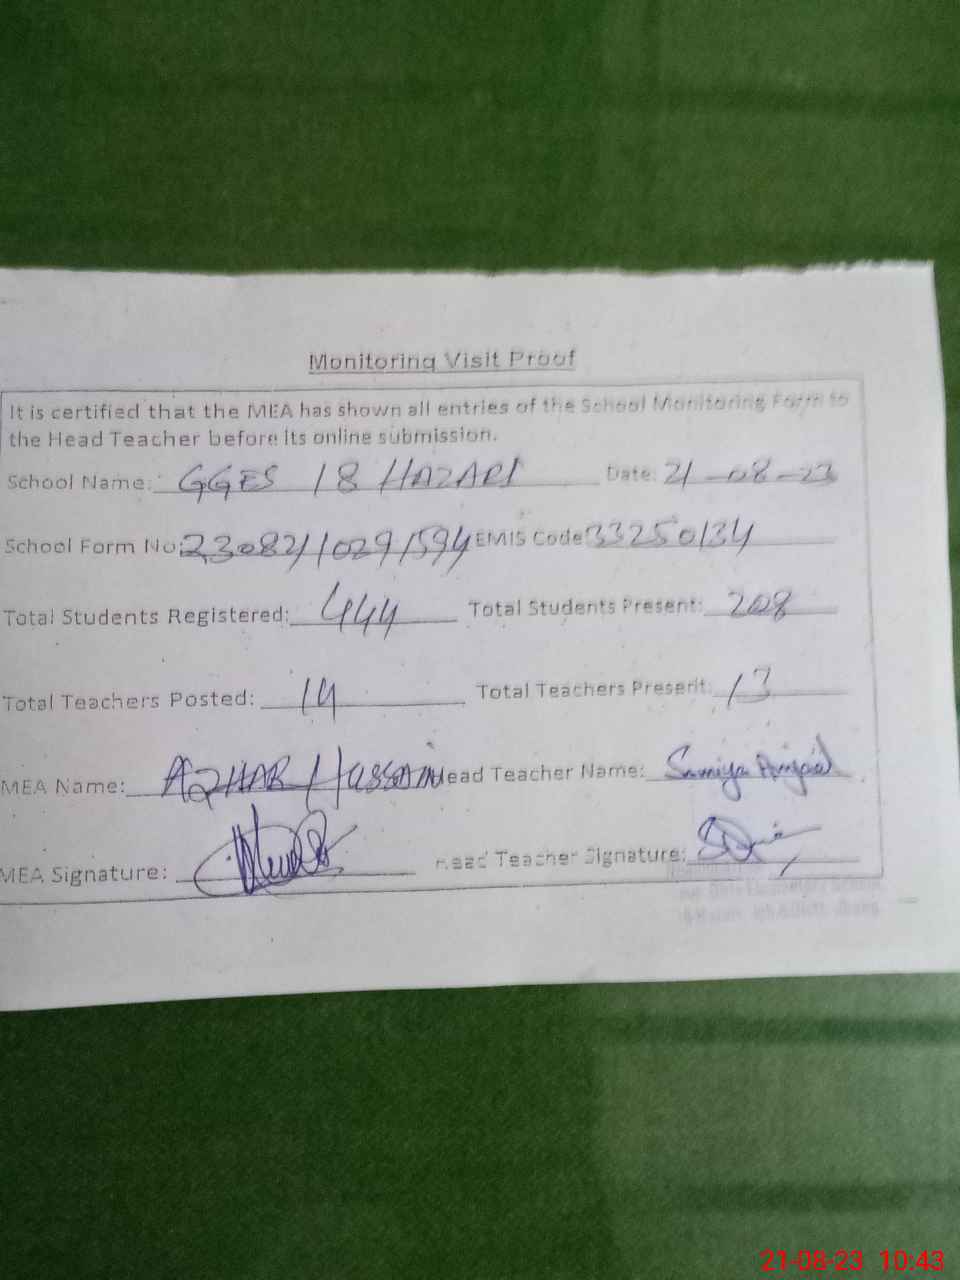 Monitoring Visit Proof
It is certified that the MEA has shown all entries of the School Monitoring Form to
the Head Teacher before its online submission.
School Name: GGES 18 HAZARI Date: 21-08-23
School Form No: 23082110291594 EMIS Code 33250134
Total Students Registered: 444 Total Students Present: 208
Total Teachers Posted: 14 Total Teachers Present: 13
MEA Name: AZHAR HUSSAIN Head Teacher Name: Samiya Amjad
MEA Signature: Head Teacher Signature:
Elementary School
21-08-23 10:43